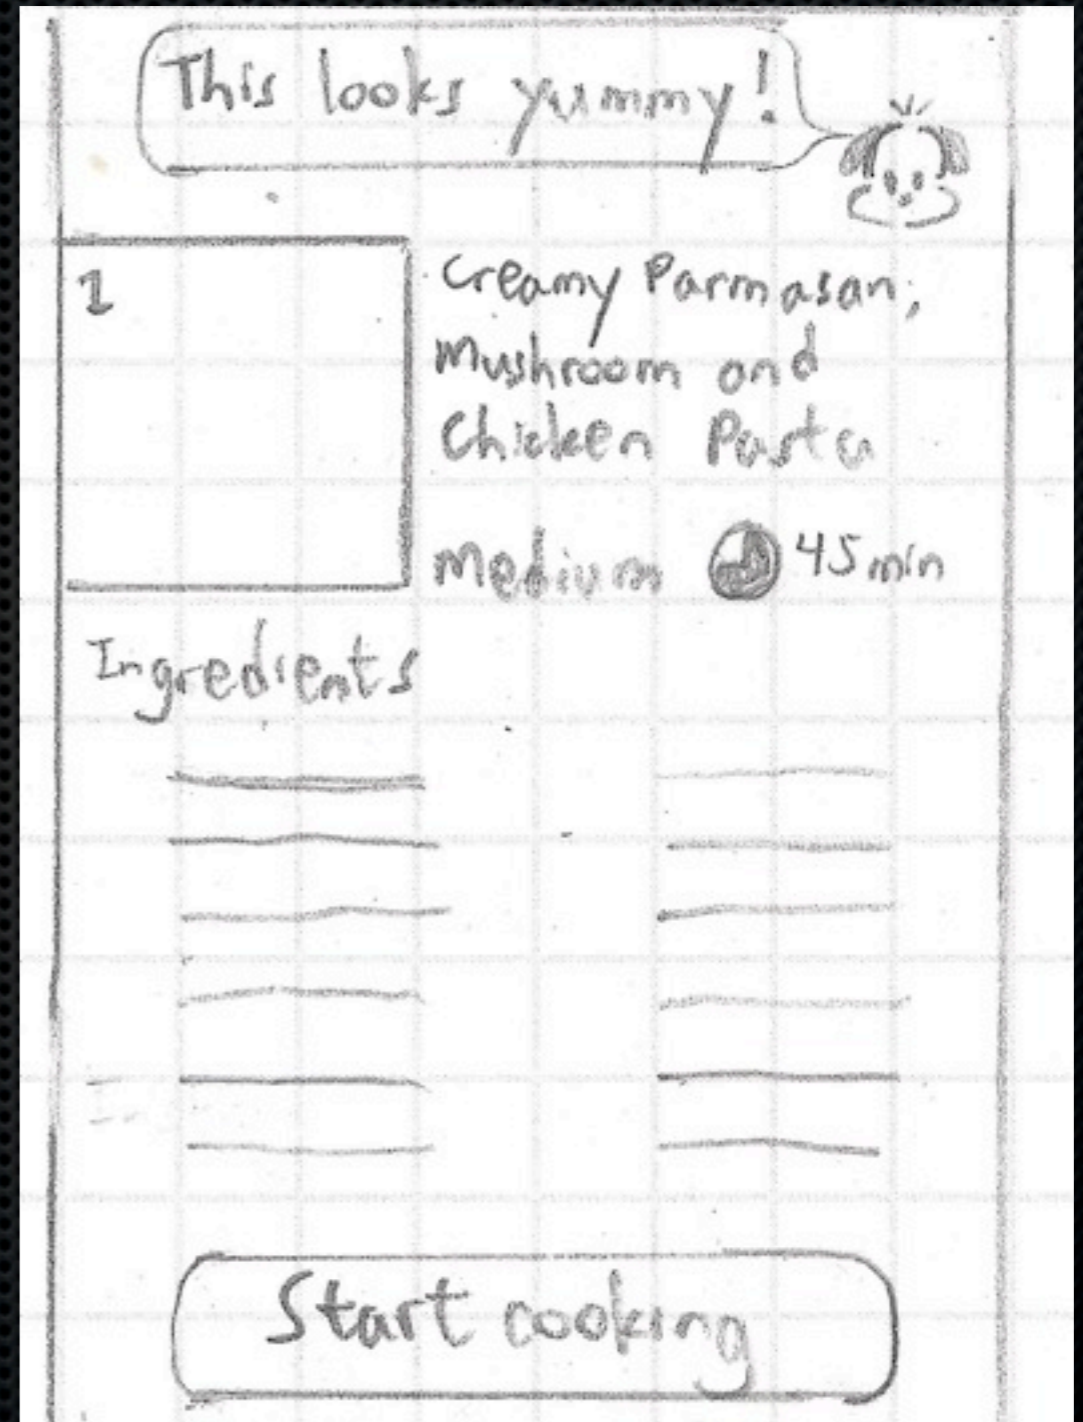 This looks yummy!
1
Creamy Parmasan,
Mushroom and
Chicken Pasta
Medium 45 min
Ingredients
Start cooking